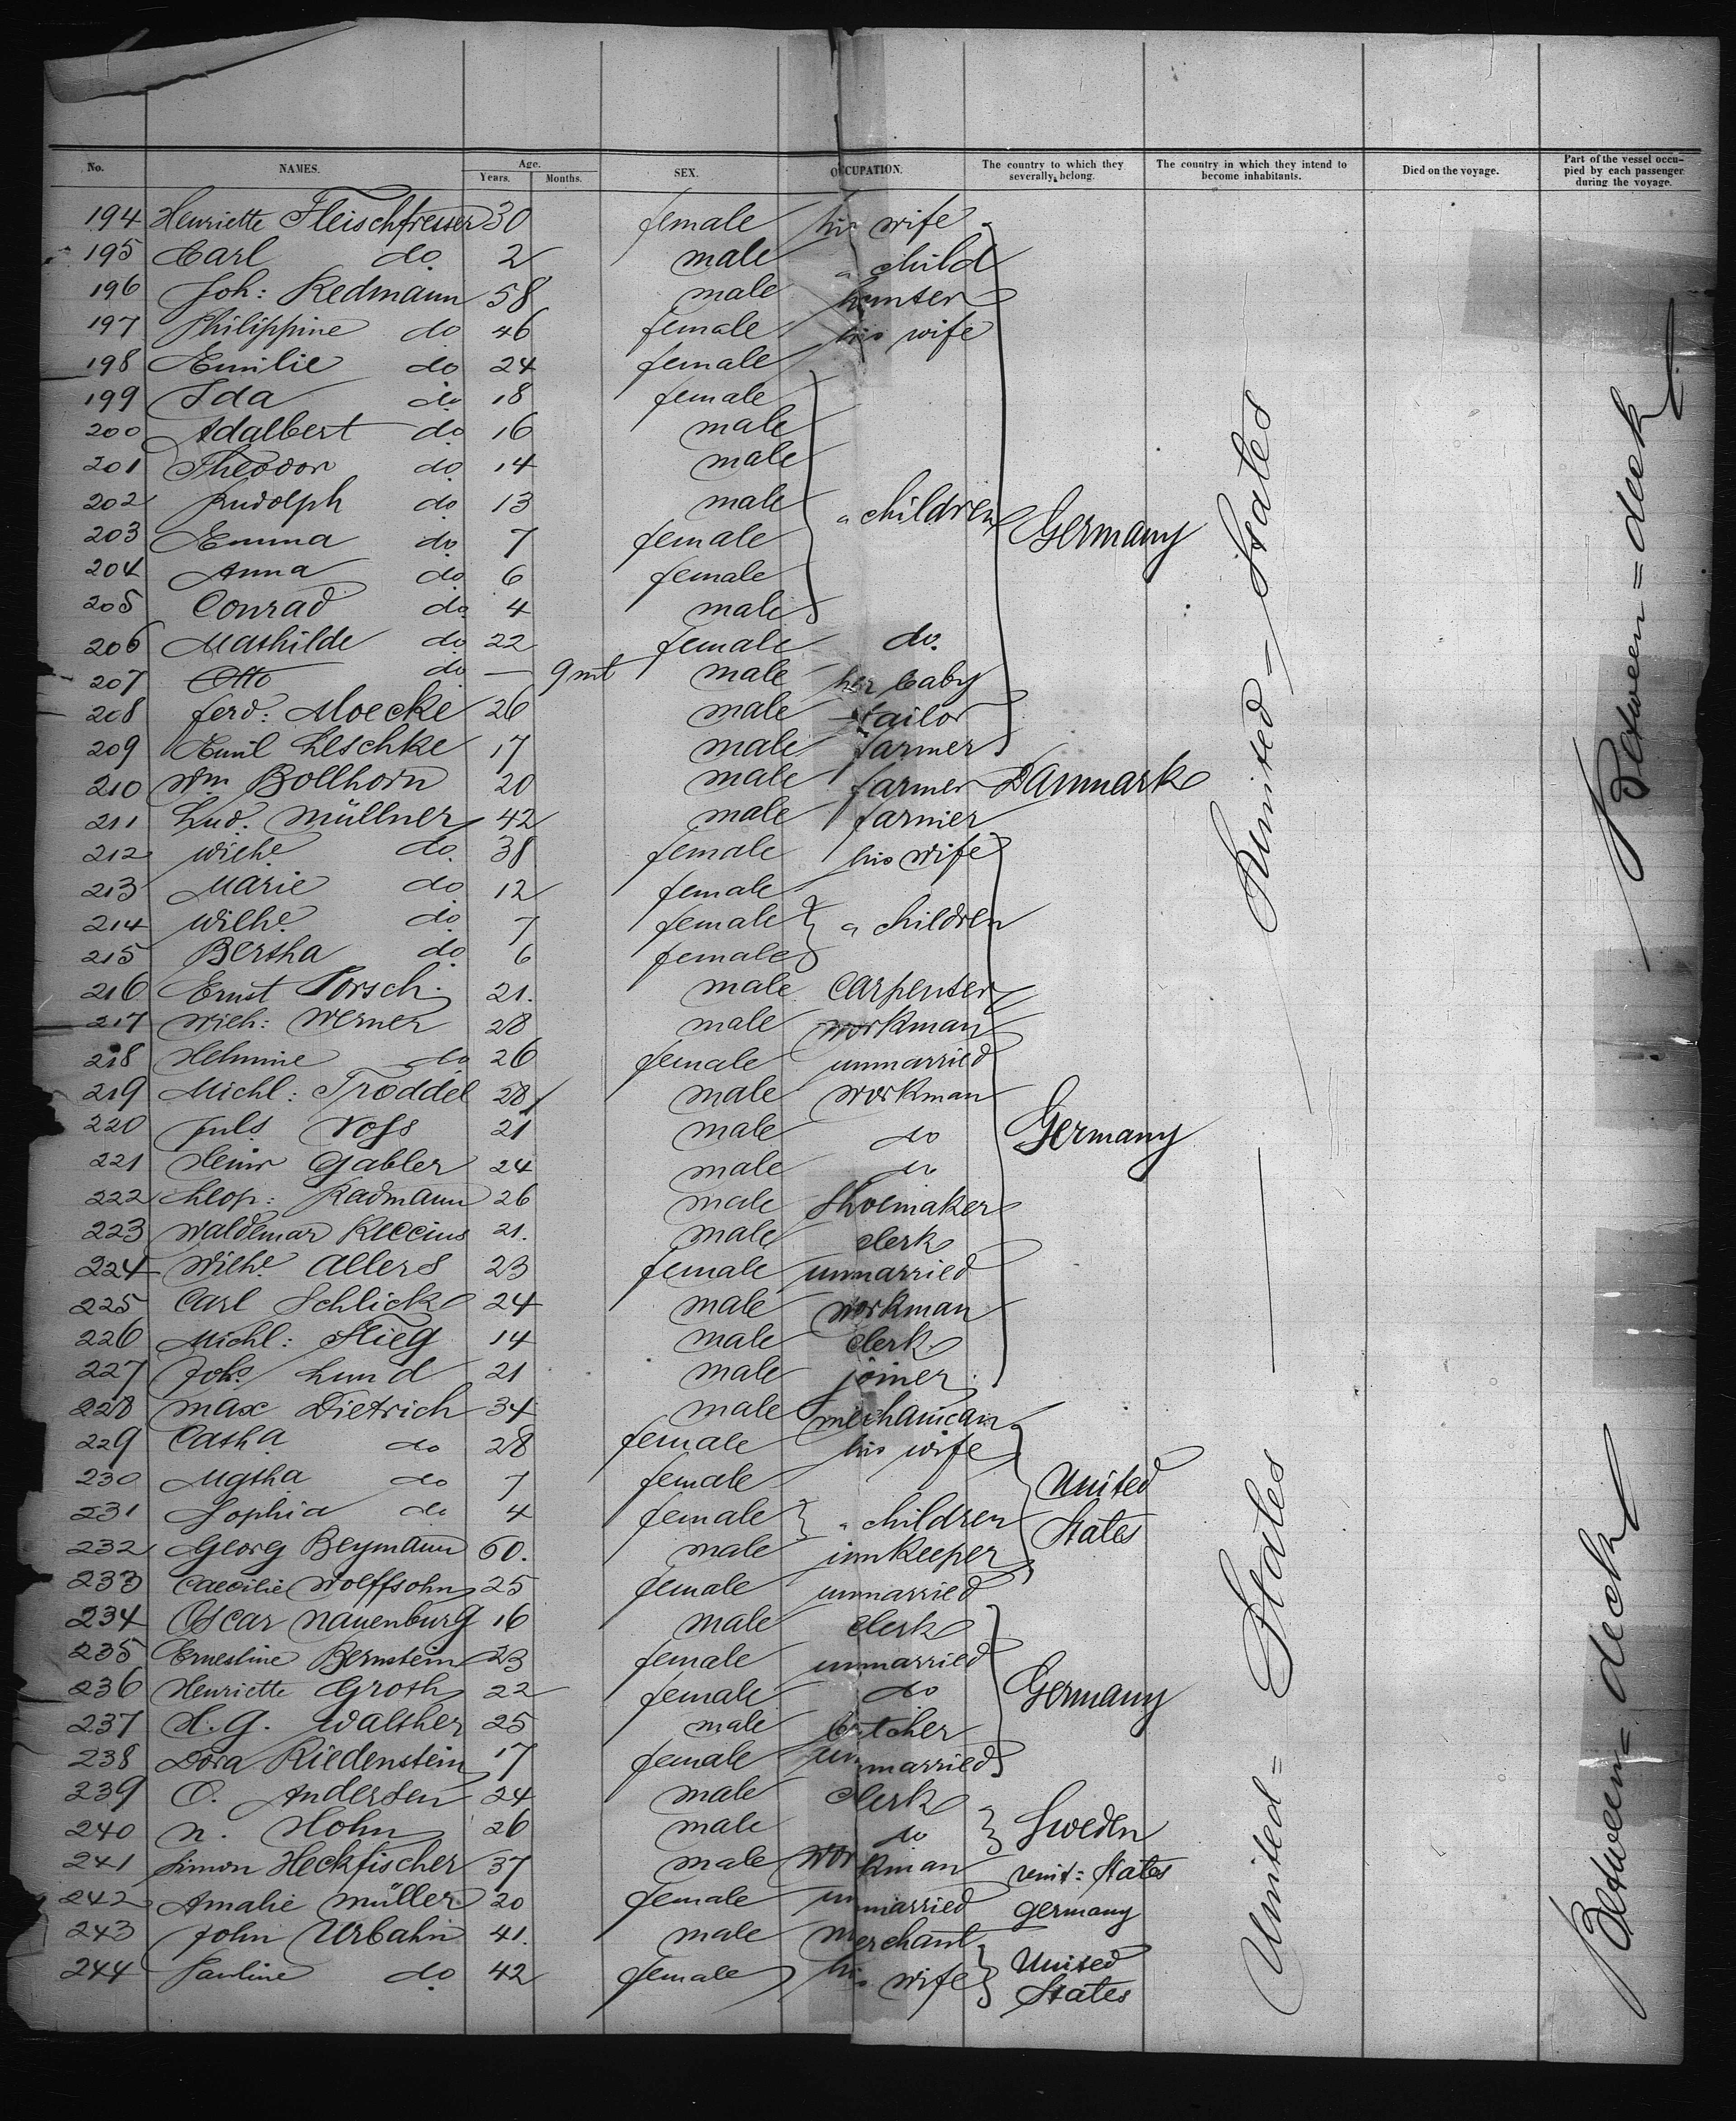 No. NAMES. Age. Years. Months. SEX. OCCUPATION. The country to which they severally belong. The country in which they intend to become inhabitants. Died on the voyage. Part of the vessel occupied by each passenger during the voyage.
194 Henriette Fleischfresser 30 female his wife
195 Carl do 2 male " child
196 Joh: Redmann 58 male hunter
197 Philippine do 46 female his wife
198 Emilie do 24 female
199 Ida do 18 female
200 Adalbert do 16 male
201 Theodor do 14 male
202 Rudolph do 13 male " children Germany
203 Emma do 7 female
204 Anna do 6 female
205 Conrad do 4 male
206 Mathilde do 22 female do.
207 Otto do — 9 mt male her baby
208 Ferd: Moecke 26 male tailor
209 Emil Leschke 17 male farmer
210 Wm Bollhorn 20 male farmer Danmark
211 Lud. Müllner 42 male farmer
212 Wilhe do 38 female his wife
213 Marie do 12 female
214 Wilhe do 7 female " children
215 Bertha do 6 female
216 Ernst Porsch 21. male carpenter
217 Wilh: Werner 28 male workman
218 Helmine do 26 female unmarried
219 Michl: Troddel 28 male workman
220 Juls Voss 21 male do Germany
221 Heinr Gabler 24 male do
222 Leop: Radmann 26 male Shoemaker
223 Waldemar Reccius 21. male clerk
224 Wilhe Allers 23 female unmarried
225 Carl Schlick 24 male workman
226 Michl: Stieg 14 male clerk
227 Johs Lund 21 male joiner
228 Max Dietrich 34 male mechanican
229 Catha do 28 female his wife
230 Mgtha do 7 female United
231 Sophia do 4 female " children States
232 Georg Beymann 60. male innkeeper
233 Caecilie Wolffsohn 25 female unmarried
234 Oscar Nauenburg 16 male clerk
235 Ernestine Bernstein 23 female unmarried
236 Henriette Groth 22 female do Germany
237 H. G. Walther 25 male butcher
238 Dora Riedenstein 17 female unmarried
239 O. Andersen 24 male clerk
240 N. Hohn 26 male do Sweden
241 Simon Heckfischer 37 male workman unit: States
242 Amalie Müller 20 female unmarried Germany
243 John Urbahn 41. male merchant United
244 Pauline do 42 female his wife States
United = States
United = States
Between = deck
Between = deck